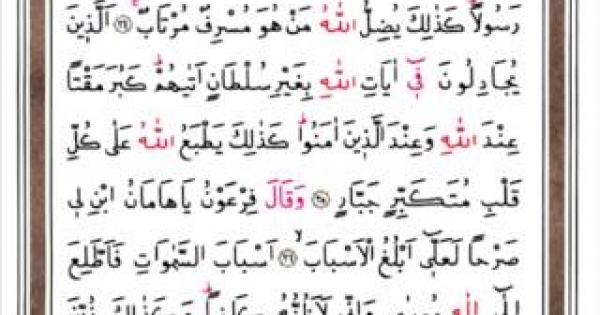 رَسُولًا كَذٰلِكَ يُضِلُّ اللّٰهُ مَنْ هُوَ مُسْرِفٌ مُرْتَابٌ ۞ اَلَّذ۪ينَ
يُجَادِلُونَ ف۪ٓي اٰيَاتِ اللّٰهِ بِغَيْرِ سُلْطَانٍ اَتٰيهُمْ كَبُرَ مَقْتًا
عِنْدَ اللّٰهِ وَعِنْدَ الَّذ۪ينَ اٰمَنُوا كَذٰلِكَ يَطْبَعُ اللّٰهُ عَلٰى كُلِّ
قَلْبِ مُتَكَبِّرٍ جَبَّارٍ ۞ وَقَالَ فِرْعَوْنُ يَاهَامَانُ ابْنِ ل۪ي
صَرْحًا لَعَلّ۪ٓي اَبْلُغُ الْاَسْبَابَ ۞ اَسْبَابَ السَّمٰوَاتِ فَاَطَّلِعَ